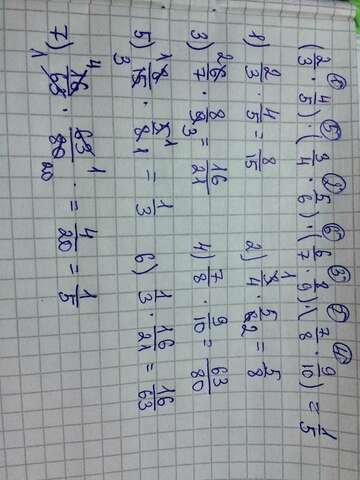 (2/3 · 4/5) · (3/4 · 5/6) · (6/7 · 8/9) · (7/8 · 9/10) = 1/5
1) 2/3 · 4/5 = 8/15 2) 3/4 · 5/6 = 5/8
3) 6/7 · 8/9 = 16/21 4) 7/8 · 9/10 = 63/80
5) 8/15 · 5/8 = 1/3 6) 1/3 · 16/21 = 16/63
7) 16/63 · 63/80 = 4/20 = 1/5